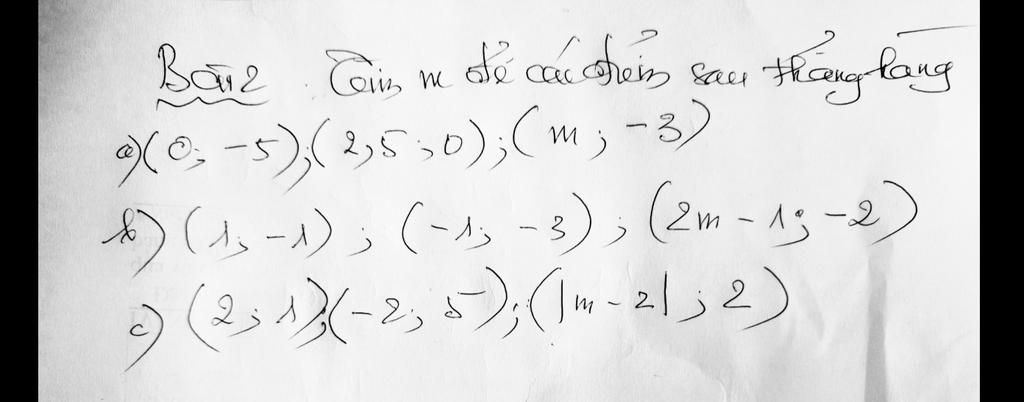 Bài 2. Tìm m để các điểm sau thẳng hàng
a) (0; -5); (2,5; 0); (m; -3)
b) (1; -1); (-1; -3); (2m - 1; -2)
c) (2; 1); (-2; 5); (|m - 2|; 2)